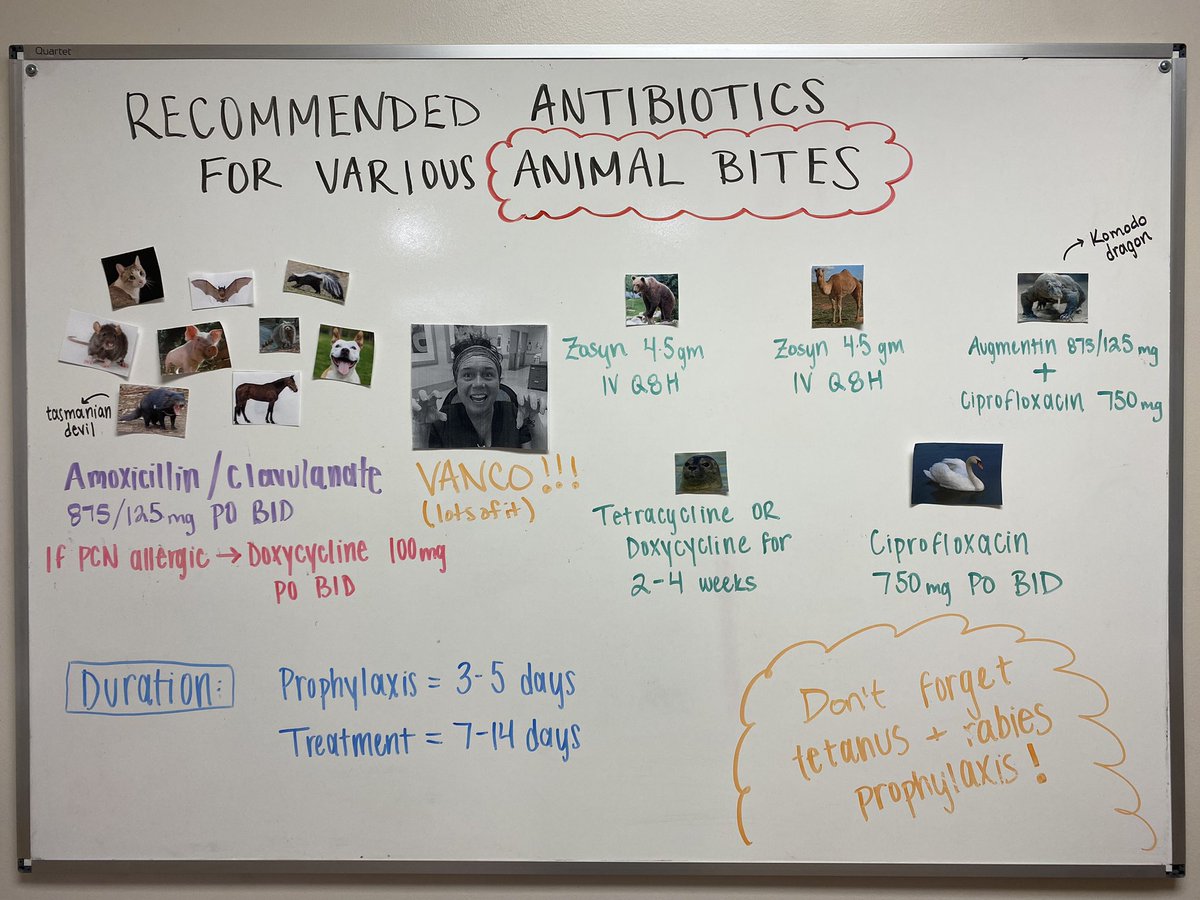 Quartet
RECOMMENDED ANTIBIOTICS
FOR VARIOUS ANIMAL BITES
tasmanian
devil
Amoxicillin/Clavulanate
875/125mg PO BID
If PCN allergic → Doxycycline 100mg
PO BID
VANCO!!!
(lots of it)
Zosyn 4.5gm
IV Q8H
Zosyn 4.5gm
IV Q8H
Komodo
dragon
Augmentin 875/125 mg
+
Ciprofloxacin 750mg
Tetracycline OR
Doxycycline for
2-4 weeks
Ciprofloxacin
750mg PO BID
Duration:
Prophylaxis = 3-5 days
Treatment = 7-14 days
Don't forget
tetanus + rabies
prophylaxis!